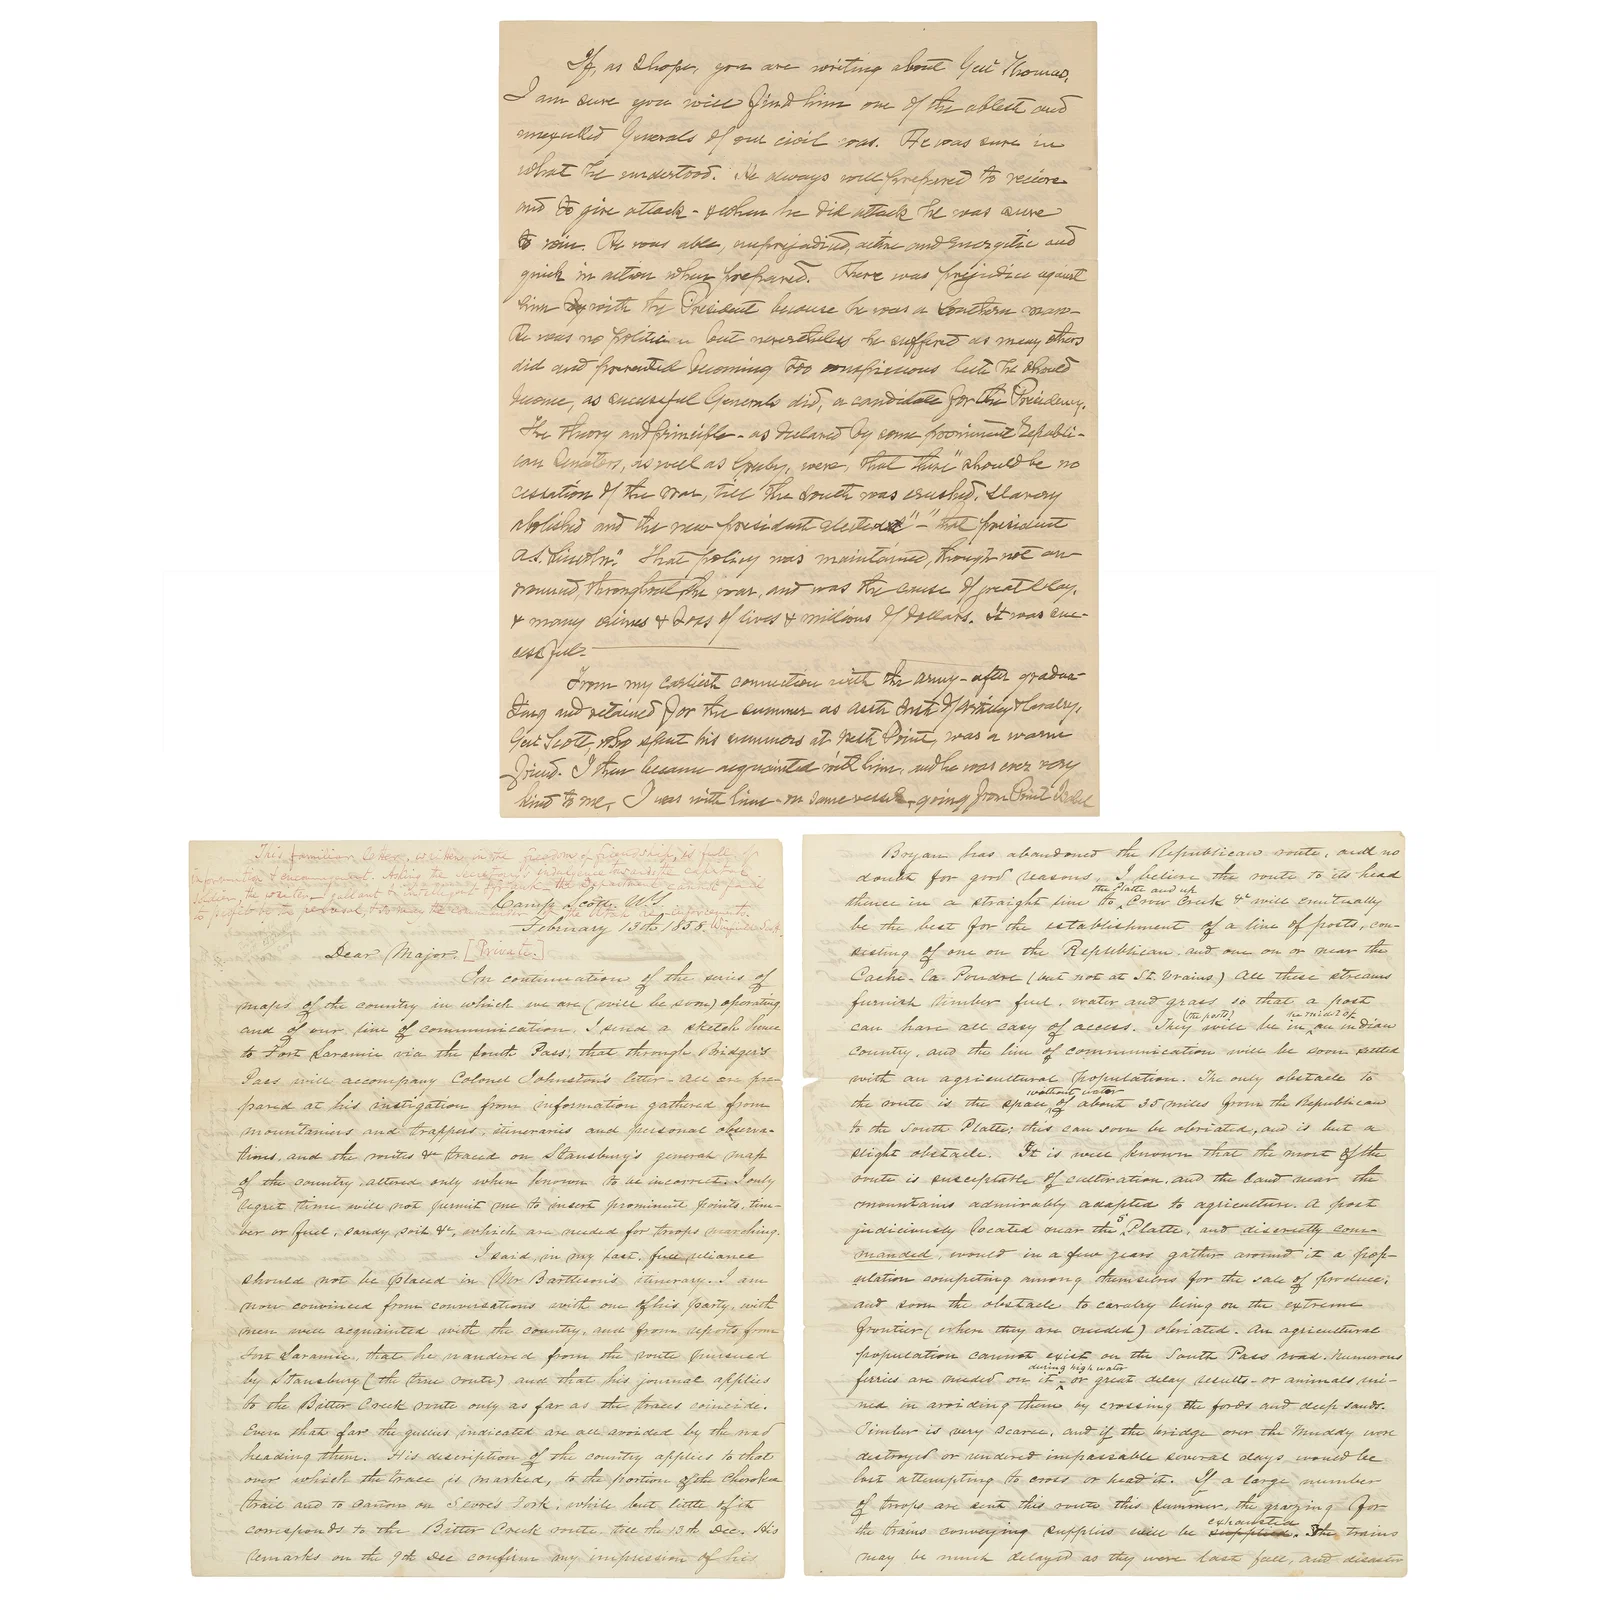 If, as I hope, you are writing about Genl Thomas,
I am sure you will find him one of the ablest and
unexcelled Generals of our civil war. He was sure in
what he understood. He always well prepared to receive
and to give attack - & when he did attack he was sure
to win. He was able, unprejudiced, active and energetic and
quick in action when prepared. There was prejudice against
him with the President because he was a Southern man-
He was no politician but nevertheless he suffered as many others
did and prevented becoming too conspicuous lest he should
become, as successful Generals did, a candidate for the Presidency.
The theory and principle - as declared by some prominent Republi-
can Senators, as well as were, that there "should be no
cessation of the war, till the South was crushed, slavery
abolished and the new president elected" - "that president
That policy was maintained, though not an-
nounced, throughout the war, and was the cause of great delay,
& many crimes & loss of lives & millions of dollars. It was suc-
cessful-
From my earliest connection with the army - after gradua-
ting and retained for the summer as asst Inst of Artillery & Cavalry,
Genl Scott, who spent his summers at West Point, was a warm
friend. I then became acquainted with him, and he was ever very
kind to me. I was with him - on same vessel, going from Point Isabel
This familiar letter, written in the freedom of friendship, is full of
information & encouragement. Asking the Secretary's indulgence towards the
soldier, the writer - gallant & intelligent the Department cannot fail
to profit by its perusal,
Camp Scott U.T.
February 13th 1858.
Dear Major. [Private.]
In continuation of the series of
maps of the country in which we are (will be soon) operating
and of our line of communication, I send a sketch hence
to Fort Laramie via the South Pass; that through Bridger's
Pass will accompany Colonel Johnston's letter - all are pre-
pared at his instigation from information gathered from
mountaineers and trappers, itineraries and personal observa-
tions, and the routes &c traced on Stansbury's general map
of the country altered only when known to be incorrect. I only
regret time will not permit me to insert prominent points, tim-
ber or fuel, sandy soil &c, which are needed for troops marching.
I said, in my last, full reliance
should not be placed in Mr Bartletson's itinerary. I am
now convinced from conversations with one of his party, with
men well acquainted with the country, and from reports from
Fort Laramie, that he wandered from the route pursued
by Stansbury (the true route) and that his journal applies
to the Bitter Creek route only as far as the traces coincide.
Even that far the gullies indicated are all avoided by the road
heading them. His description of the country applies to that
over which the trace is marked, to the portion of the Cherokee
trail and to cañon on Fork; while but little of it
corresponds to the Bitter Creek route till the 13th Dec. His
remarks on the 9th Dec confirm my impression of his
Bryan has abandoned the Republican route, and no
doubt for good reasons. I believe the route to its head
the Platte and up
thence in a straight line to Crow Creek &c will eventually
be the best for the establishment of a line of posts, con-
sisting of one on the Republican and one on or near the
Cache-la Poudre (but not at St. Vrains.) All these streams
furnish timber fuel, water and grass so that a post
(the posts) the midst of
can have all easy of access. They will be in an indian
country, and the line of communication will be soon settled
with an agricultural population. The only obstacle to
without water
the route is the space of about 35 miles from the Republican
to the South Platte; this can soon be obviated, and is but a
slight obstacle. It is well known that the most of the
route is susceptable of cultivation, and the land near the
mountains admirably adapted to agriculture. A post
judiciously located near the S. Platte, and discreetly com-
manded, would in a few years gather around it a pop-
ulation competing among themselves for the sale of produce;
and soon the obstacle to cavalry being on the extreme
frontier (where they are needed) obviated. An agricultural
population cannot exist on the South Pass road. Numerous
during high water
ferries are needed on it - or great delay results - or animals ru-
ned in avoiding them by crossing the fords and deep sands.
Timber is very scarce, and if the bridge over the Muddy were
destroyed or rendered impassable several days would be
lost attempting to cross or head it. If a large number
of troops are sent this route this summer, the grazing for
exhausted
the trains conveying supplies will be supplied. The trains
may be much delayed as they were last fall, and disaster